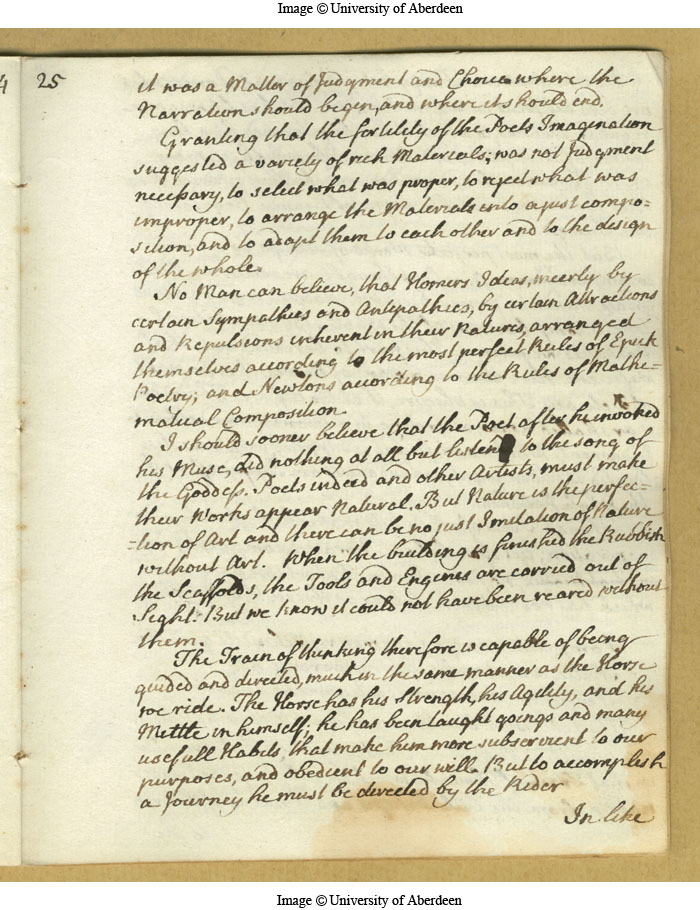 Image © University of Aberdeen
25
it was a Matter of Judgment and Choice where the
Narration should begin, and where it should end.
Granting that the fertility of the Poets Imagination
suggested a variety of rich Materials; was not Judgment
necessary, to select what was proper, to reject what was
improper, to arrange the Materials into a just compo=
sition, and to adapt them to each other and to the design
of the whole.
No Man can believe, that Homers Ideas, meerly by
certain Sympathies and Antipathies, by certain Attractions
and Repulsions inherent in their Natures, arranged
themselves according to the most perfect Rules of Epick
Poetry; and Newtons according to the Rules of Mathe=
matical Composition.
I should sooner believe that the Poet after he invoked
his Muse, did nothing at all but listen to the song of
the Goddess. Poets indeed and other Artists, must make
their Works appear Natural. But Nature is the perfec=
=tion of Art and there can be no just Imitation of Nature
without Art. When the building is finished the Rubbish
the Scaffolds, the Tools and Engines are carried out of
Sight. But we know it could not have been reared without
them.
The Train of thinking therefore is capable of being
guided and directed, much in the same manner as the Horse
we ride. The Horse has his Strength, his Agility, and his
Mettle in himself; he has been taught goings and many
usefull Habits that make him more subservient to our
purposes, and obedient to our will. But to accomplish
a Journey he must be directed by the Rider
In like
Image © University of Aberdeen